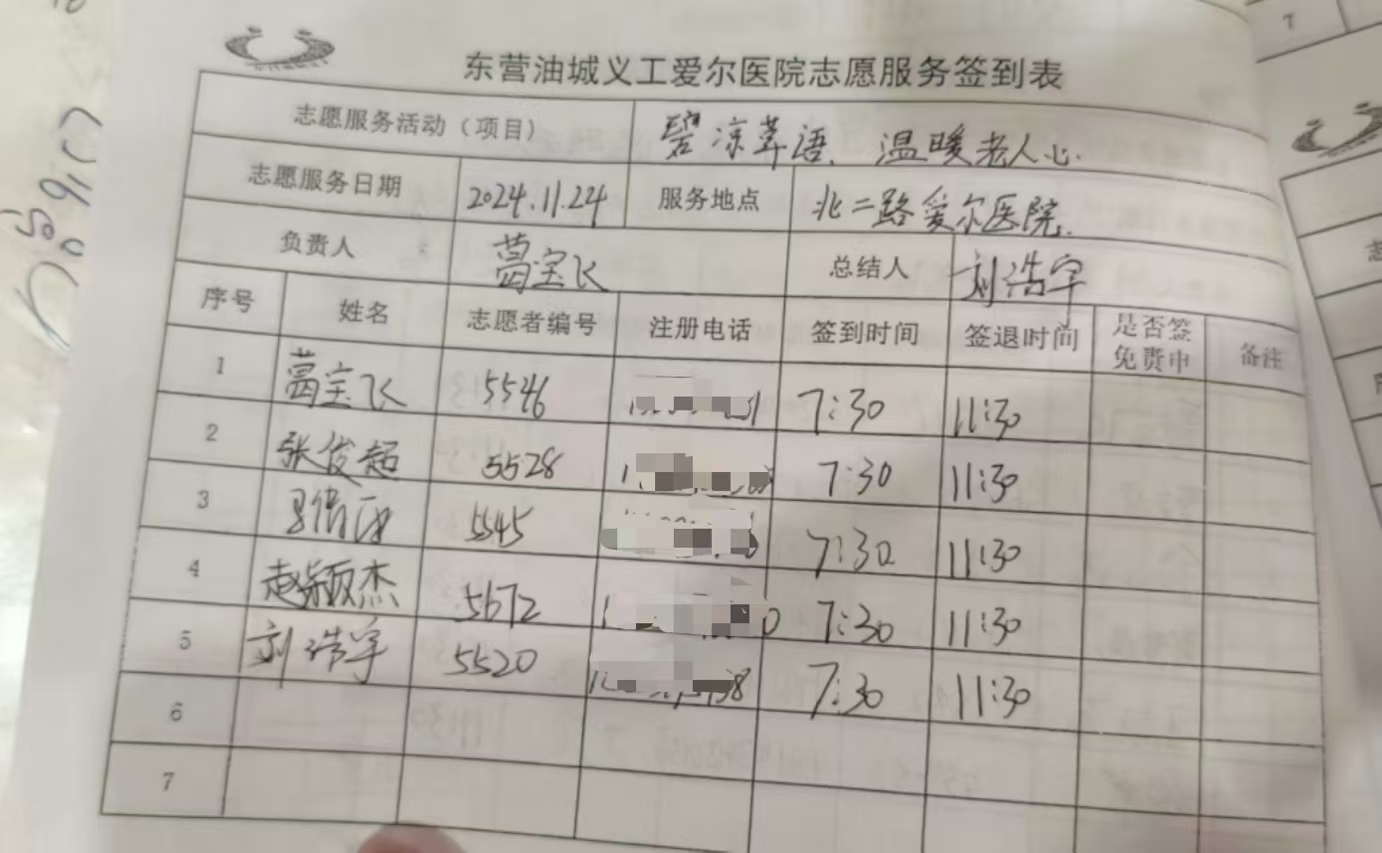 东营油城义工爱尔医院志愿服务签到表
志愿服务活动（项目） 温暖老人心.
志愿服务日期 2024.11.24 服务地点 北二路爱尔医院.
负责人 葛宝飞 总结人 刘浩宇
序号 姓名 志愿者编号 注册电话 签到时间 签退时间 是否签免费申 备注
1 葛宝飞 5546 7:30 11:30
2 张俊超 5528 7:30 11:30
3 5545 7:30 11:30
4 赵颖杰 5672 7:30 11:30
5 刘浩宇 5520 7:30 11:30
6
7